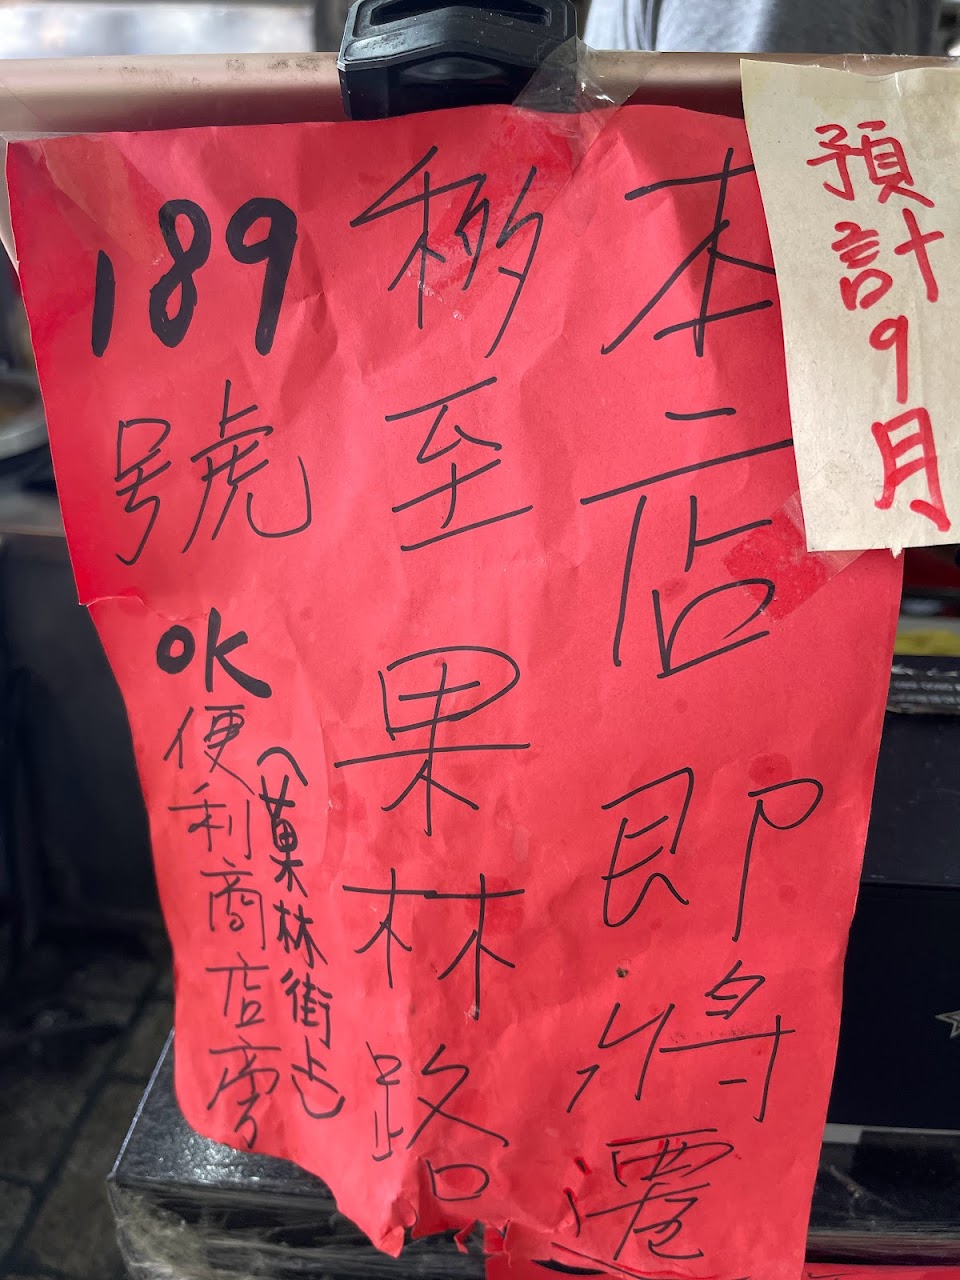 預計9月
本店即將遷
移至果林路
189號
(菓林街上)
OK便利商店旁